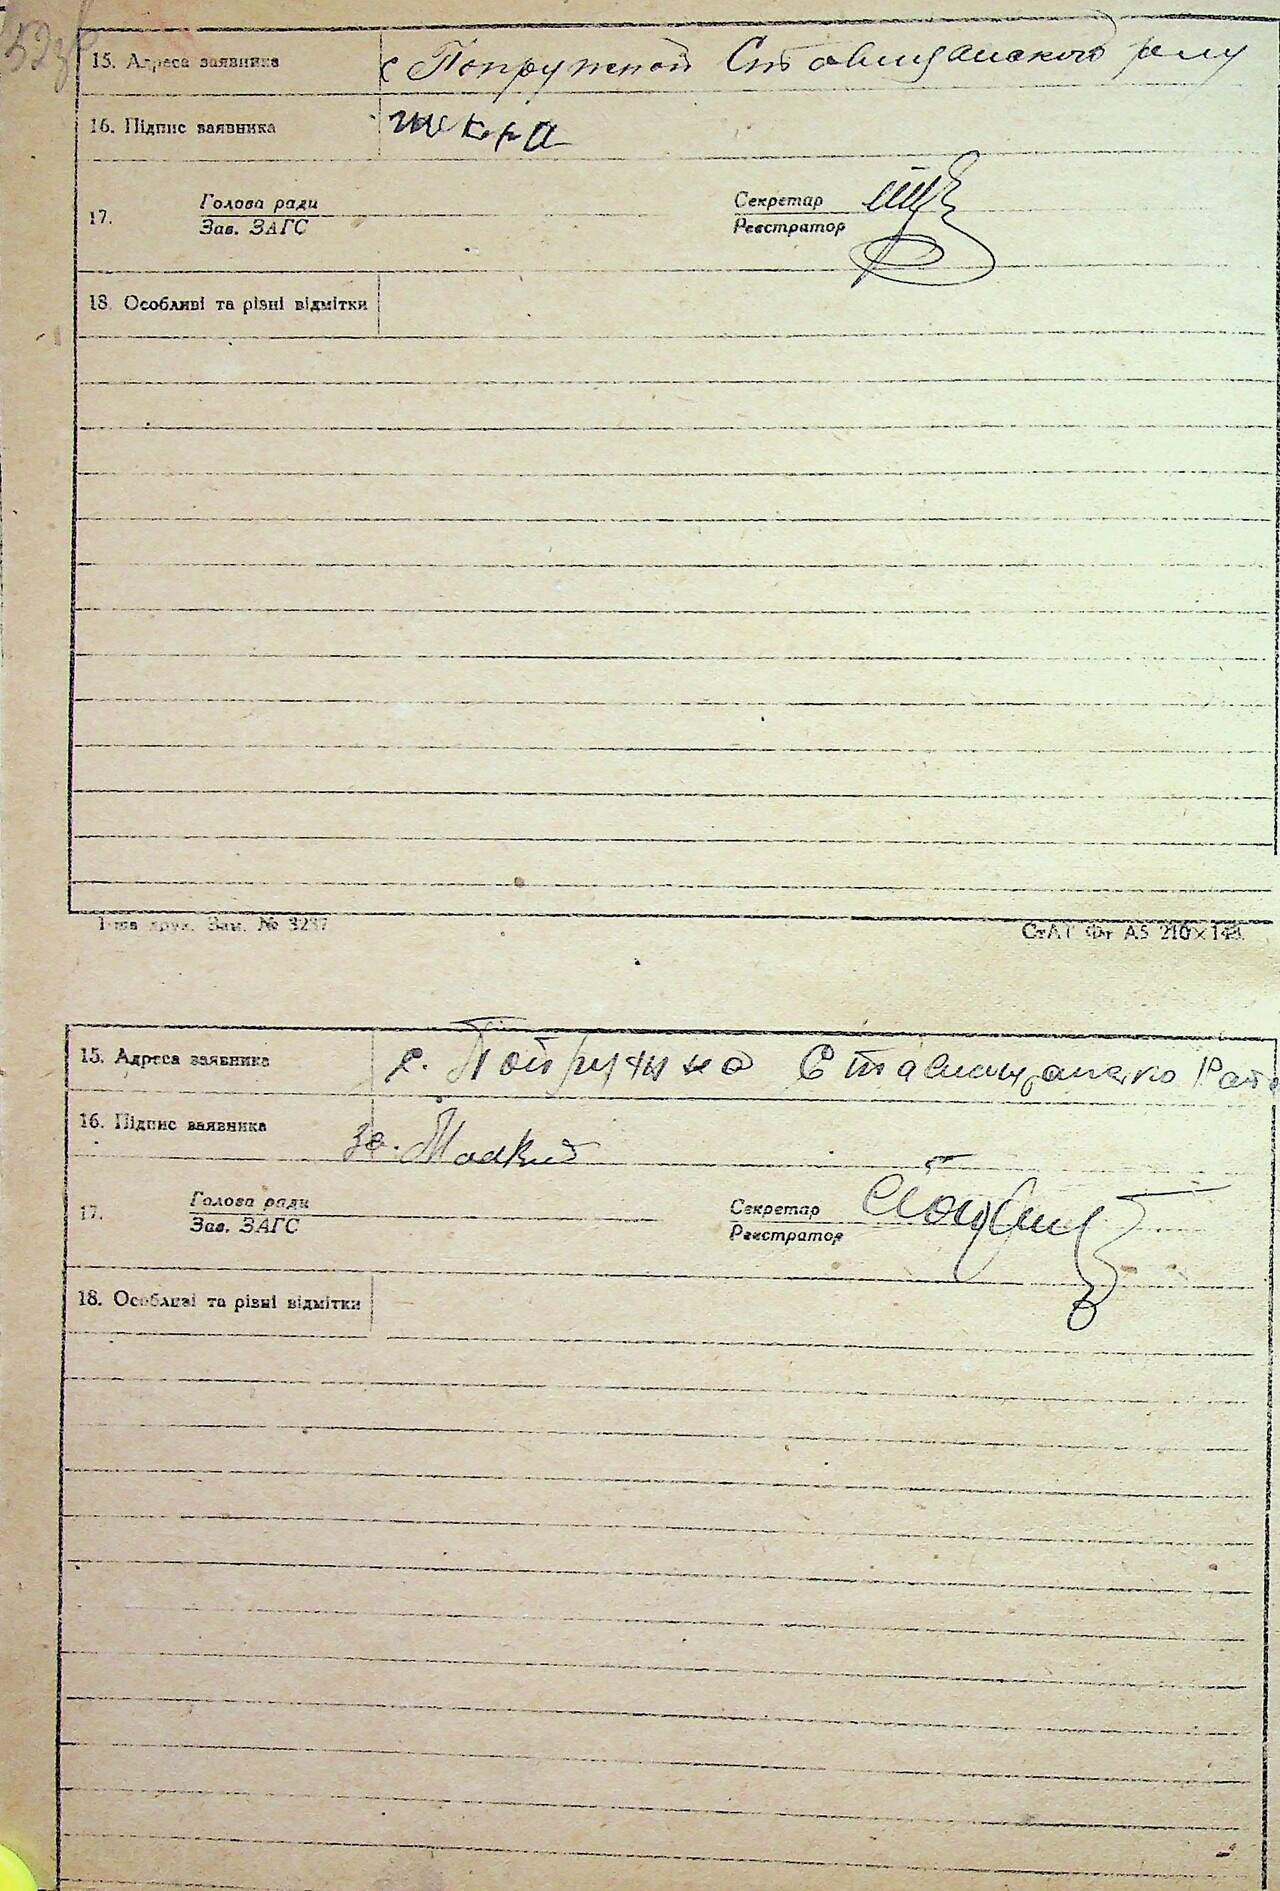 15. Адреса заявника с Попружной Ставищанского р-ну
16. Підпис заявника
17. Голова ради Секретар
Зав. ЗАГС Реєстратор
18. Особливі та різні відмітки
друк. Зам. № 3237 СтАТ Фт А5 210×148
15. Адреса заявника с. Попружна Ставищанско
16. Підпис заявника за.
17. Голова ради Секретар
Зав. ЗАГС Реєстратор
18. Особливі та різні відмітки